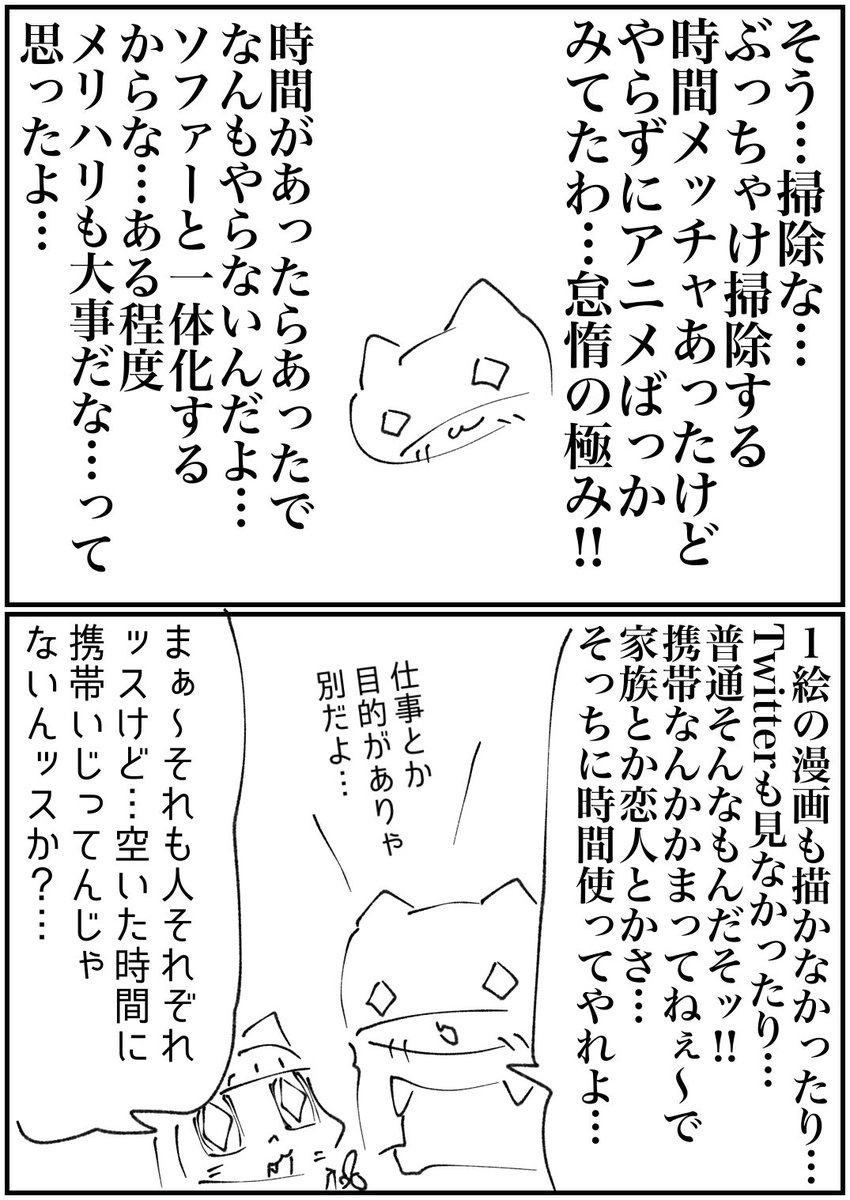 そう…掃除な…
ぶっちゃけ掃除する
時間メッチャあったけど
やらずにアニメばっか
みてたわ…怠惰の極み!!
時間があったらあったで
なんもやらないんだよ…
ソファーと一体化する
からな…ある程度
メリハリも大事だな…って
思ったよ…
1絵の漫画も描かなかったり…
Twitterも見なかったり…
普通そんなもんだそッ!!
携帯なんかかまってねぇ〜で
家族とか恋人とかさ…
そっちに時間使ってやれよ…
仕事とか
目的がありゃ
別だよ…
まぁ〜それも人それぞれ
ッスけど…空いた時間に
携帯いじってんじゃ
ないんッスか?…